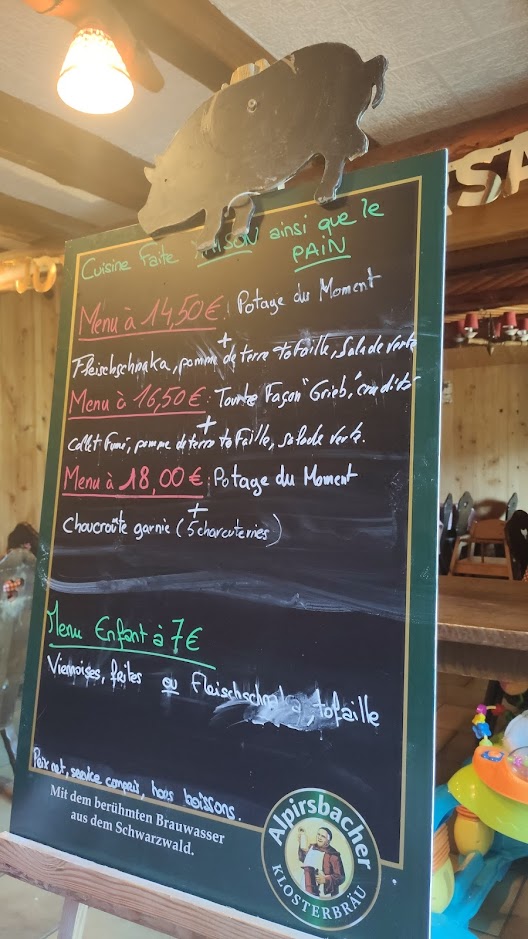 Cuisine Faite MAISON ainsi que le
PAIN
Menu à 14,50 € : Potage du Moment
+
Fleischschnaka, pomme de terre tofaille, Salade verte
Menu à 16,50 € : Tourte Façon "Grieb", crudités
+
Collet Fumé, pomme de terre tofaille, salade verte.
Menu à 18,00 € : Potage du Moment
+
Choucroûte garnie (5 charcuteries)
Menu Enfant à 7 €
Viennoises, frites ou Fleischschnaka, tofaille
Prix net, service compris, hors boissons.
Mit dem berühmten Brauwasser
aus dem Schwarzwald.
Alpirsbacher
KLOSTERBRÄU